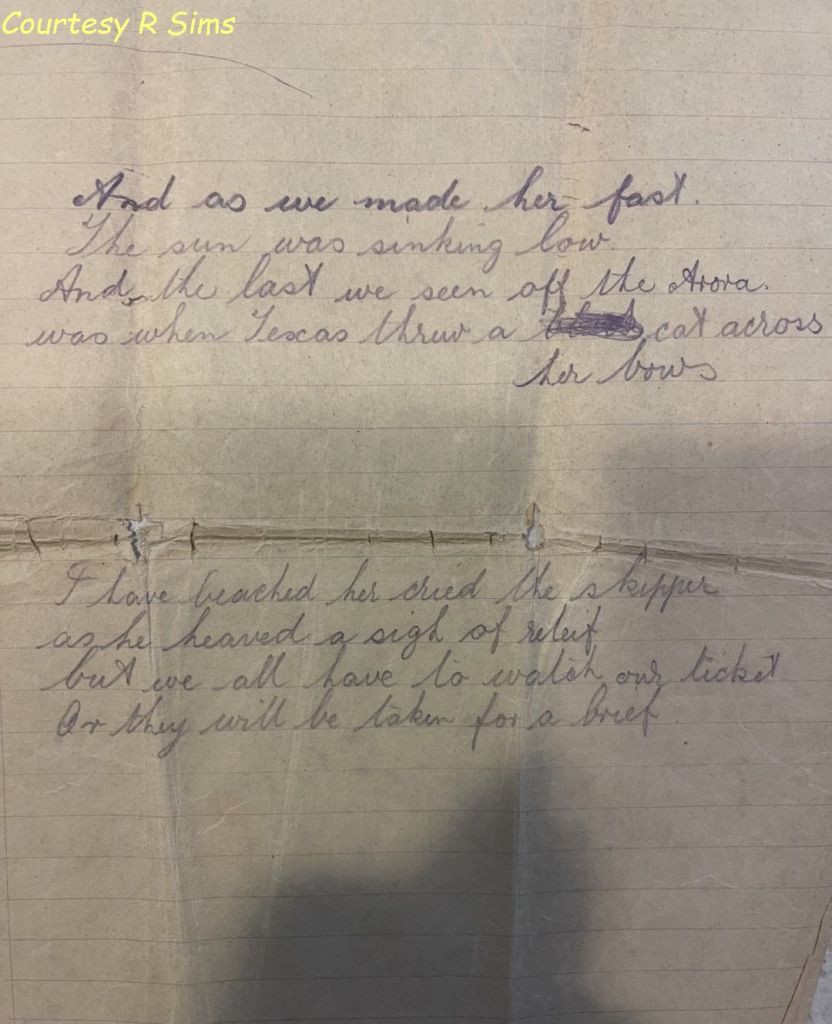 Courtesy R Sims
And as we made her fast.
The sun was sinking low.
And the last we seen off the Arora.
was when Texas threw a cat across
her bows
I have beached her cried the skipper
as he heaved a sigh of releif
but we all have to watch our ticket
Or they will be taken for a brief